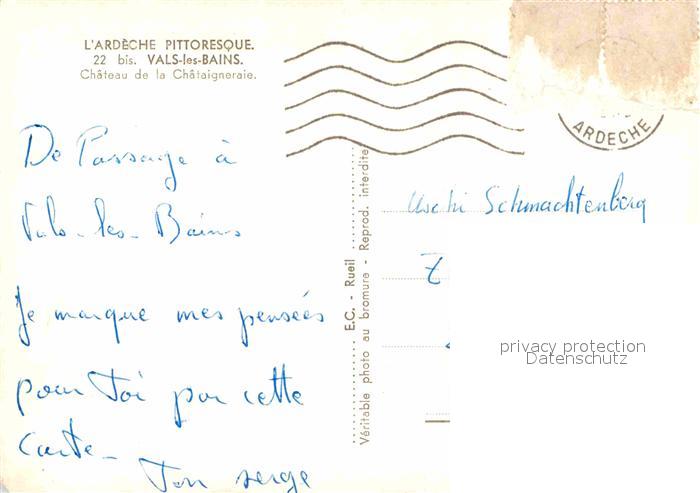 L'ARDÈCHE PITTORESQUE.
22 bis. VALS-les-BAINS.
Château de la Châtaigneraie.
ARDECHE
De Passage à
Vals-les-Bains
Je marque mes pensées
pour toi par cette
Carte-
Ton serge
E.C. - Rueil
Véritable photo au bromure - Reprod. interdite
Uschi Schmachtenberg
Z
privacy protection
Datenschutz